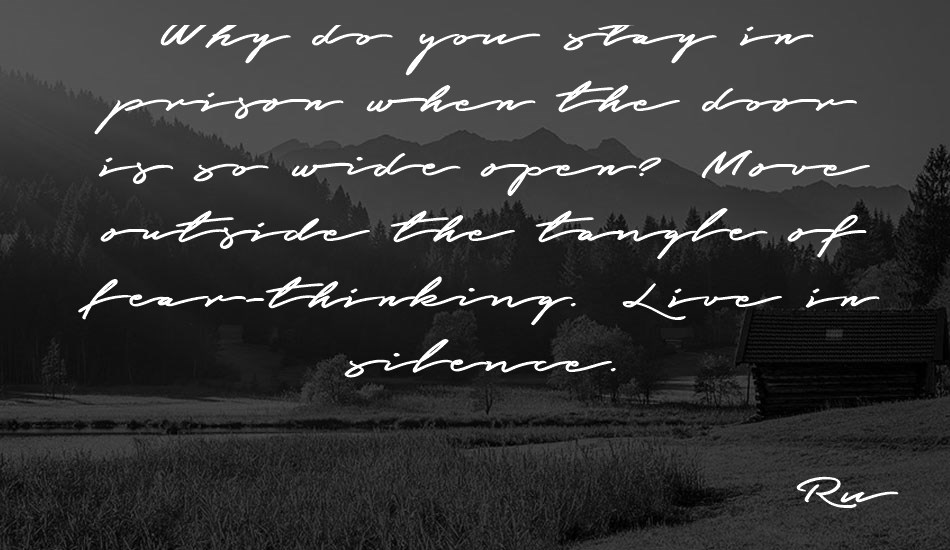 Why do you stay in
prison when the door
is so wide open? Move
outside the tangle of
fear-thinking. Live in
silence.
Ru